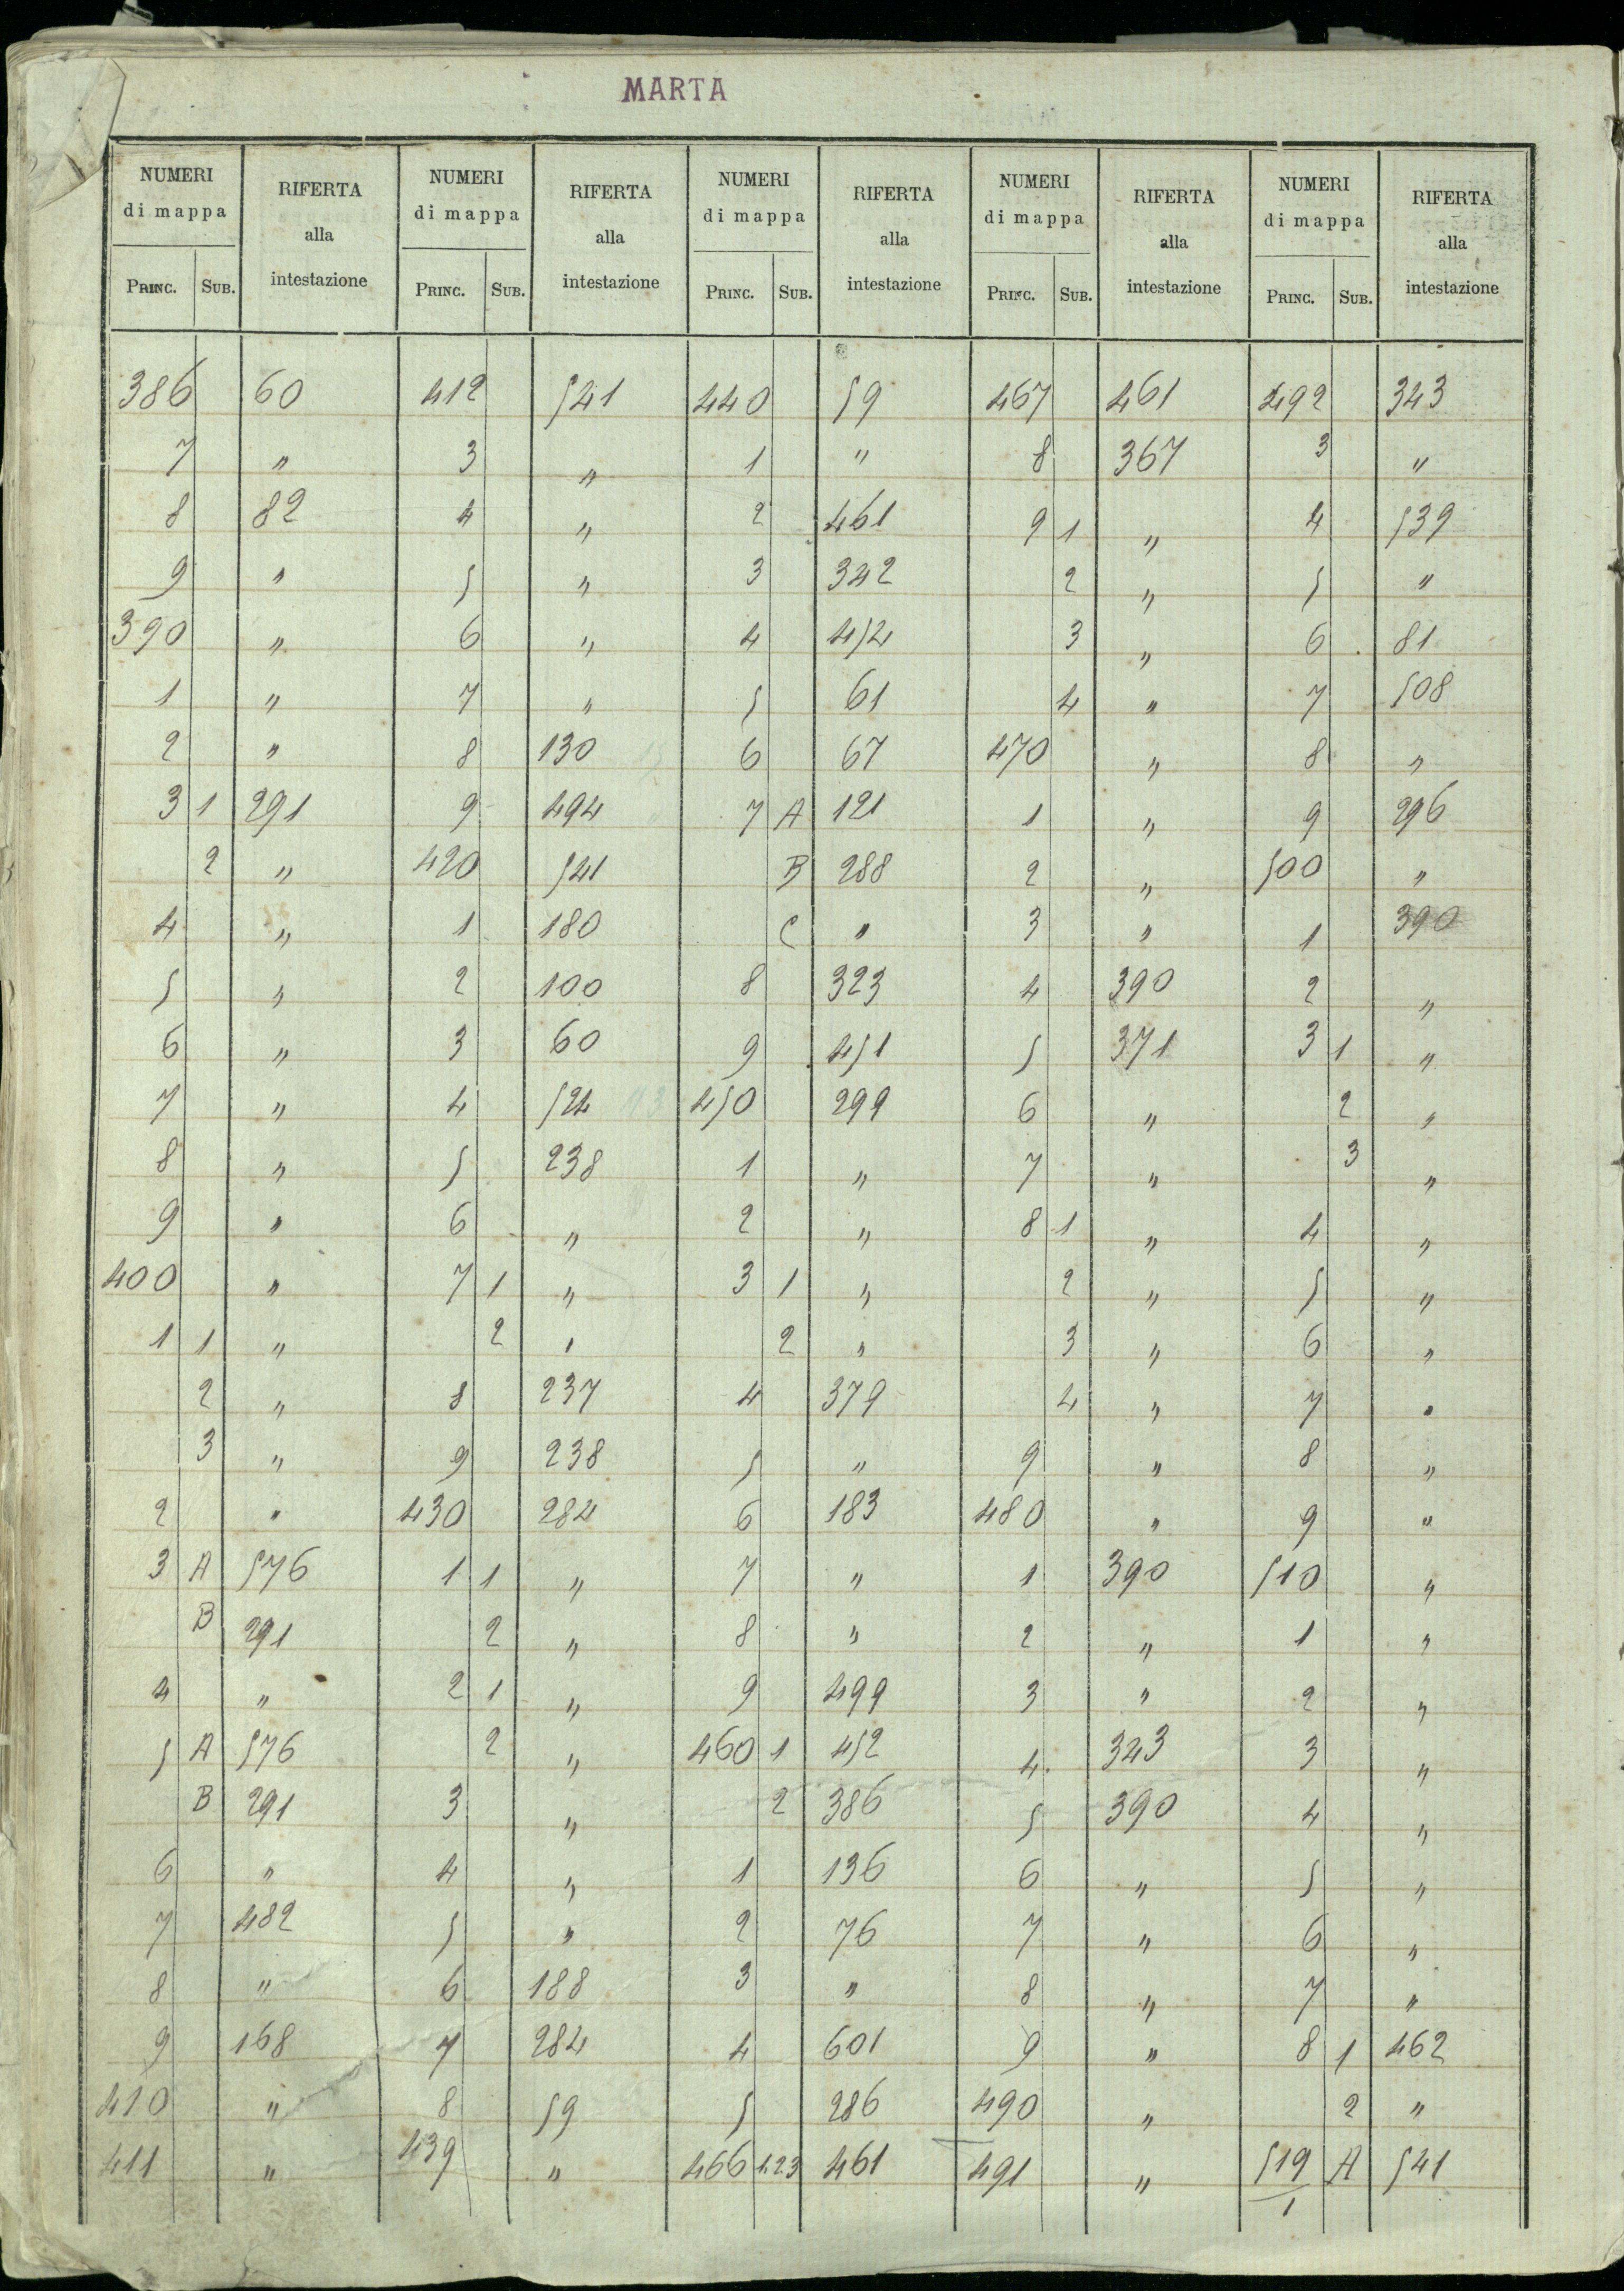 MARTA
NUMERI di mappa RIFERTA alla intestazione NUMERI di mappa RIFERTA alla intestazione NUMERI di mappa RIFERTA alla intestazione NUMERI di mappa RIFERTA alla intestazione NUMERI di mappa RIFERTA alla intestazione
PRINC. SUB. PRINC. SUB. PRINC. SUB. PRINC. SUB. PRINC. SUB.
386 60 412 541 440 59 467 461 492 343
7 " 3 " 1 " 8 367 3 "
8 82 4 " 2 461 9 1 " 4 539
9 " 5 " 3 342 2 " 5 "
390 " 6 " 4 454 3 " 6 81
1 " 7 " 5 61 4 " 7 508
2 " 8 130 6 67 470 " 8 "
3 1 291 9 494 7 A 121 1 " 9 296
2 " 420 541 B 288 2 " 500 "
4 " 1 180 C " 3 " 1 390
5 " 2 100 8 323 4 390 2 "
6 " 3 60 9 451 5 371 3 1 "
7 " 4 524 450 299 6 " 2 "
8 " 5 238 1 " 7 " 3 "
9 " 6 " 2 " 8 1 " 4 "
400 " 7 1 " 3 1 " 2 " 5 "
1 1 " 2 " 2 " 3 " 6 "
2 " 8 237 4 379 4 " 7 "
3 " 9 238 5 " 9 " 8 "
2 " 430 284 6 183 480 " 9 "
3 A 576 1 1 " 7 " 1 390 510 "
B 291 2 " 8 " 2 " 1 "
4 " 2 1 " 9 499 3 " 2 "
5 A 576 2 " 460 1 452 4 343 3 "
B 291 3 " 2 386 5 390 4 "
6 " 4 " 1 136 6 " 5 "
7 482 5 " 2 76 7 " 6 "
8 " 6 188 3 " 8 " 7 "
9 168 7 284 4 601 9 " 8 1 462
410 " 8 59 5 286 490 " 2 "
411 " 439 " 466 1.2.3 461 491 " 519 A 541
1